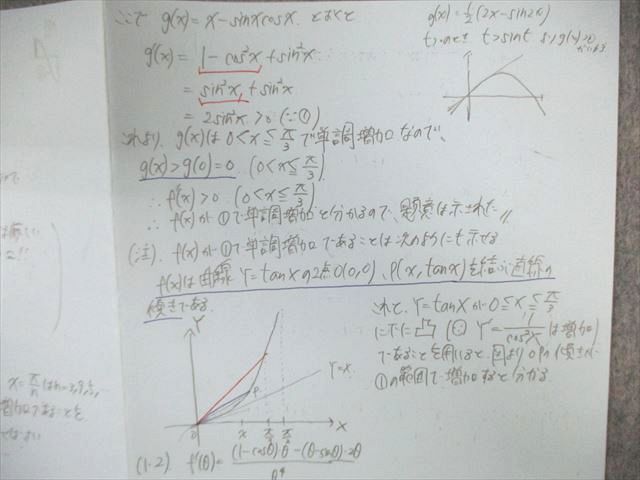 ここで g(x) = x - sinxcosx. とおくと
g(x) = 1/2 (2x - sin2x)
t>0のとき t > sint より g(x)>0
g'(x) = 1 - cos²x + sin²x
= sin²x + sin²x
= 2sin²x > 0 (∵①)
これより、g(x)は 0<x≦π/3 で単調増加なので、
g(x) > g(0) = 0. (0<x≦π/3)
∴ f'(x) > 0 (0<x≦π/3)
∴ f(x)が①で単調増加と分かるので、題意は示された〃
(注). f(x)が①で単調増加であることは次のようにも示せる
f(x)は曲線 Y=tanX の2点O(0,0)、P(x, tanx)を結ぶ直線の
傾きである
これで、Y=tanX が 0≦x≦π/3
に下に凸 (∵ Y'= 1/cos²X は増加)
であることを用いると、図よりOPの傾きは
①の範囲で増加すると分かる
Y
Y=X
P
O
x
π/3
π/2
X
(1-2). f'(θ) = (1-cosθ)・θ² - (θ-sinθ)・2θ / θ⁴
x = π/n
増加であることを